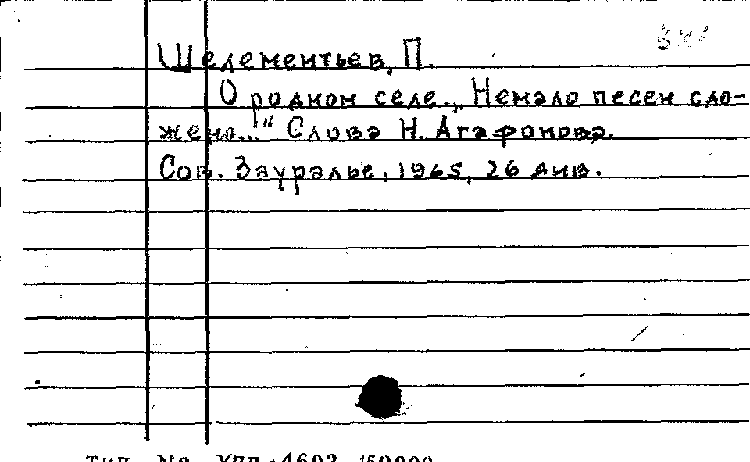 Шелементьев, П.
О родном селе. „Немало песен сло-
жено..." Слова Н. Агафонова.
Сов. Зауралье, 1965, 26 янв.